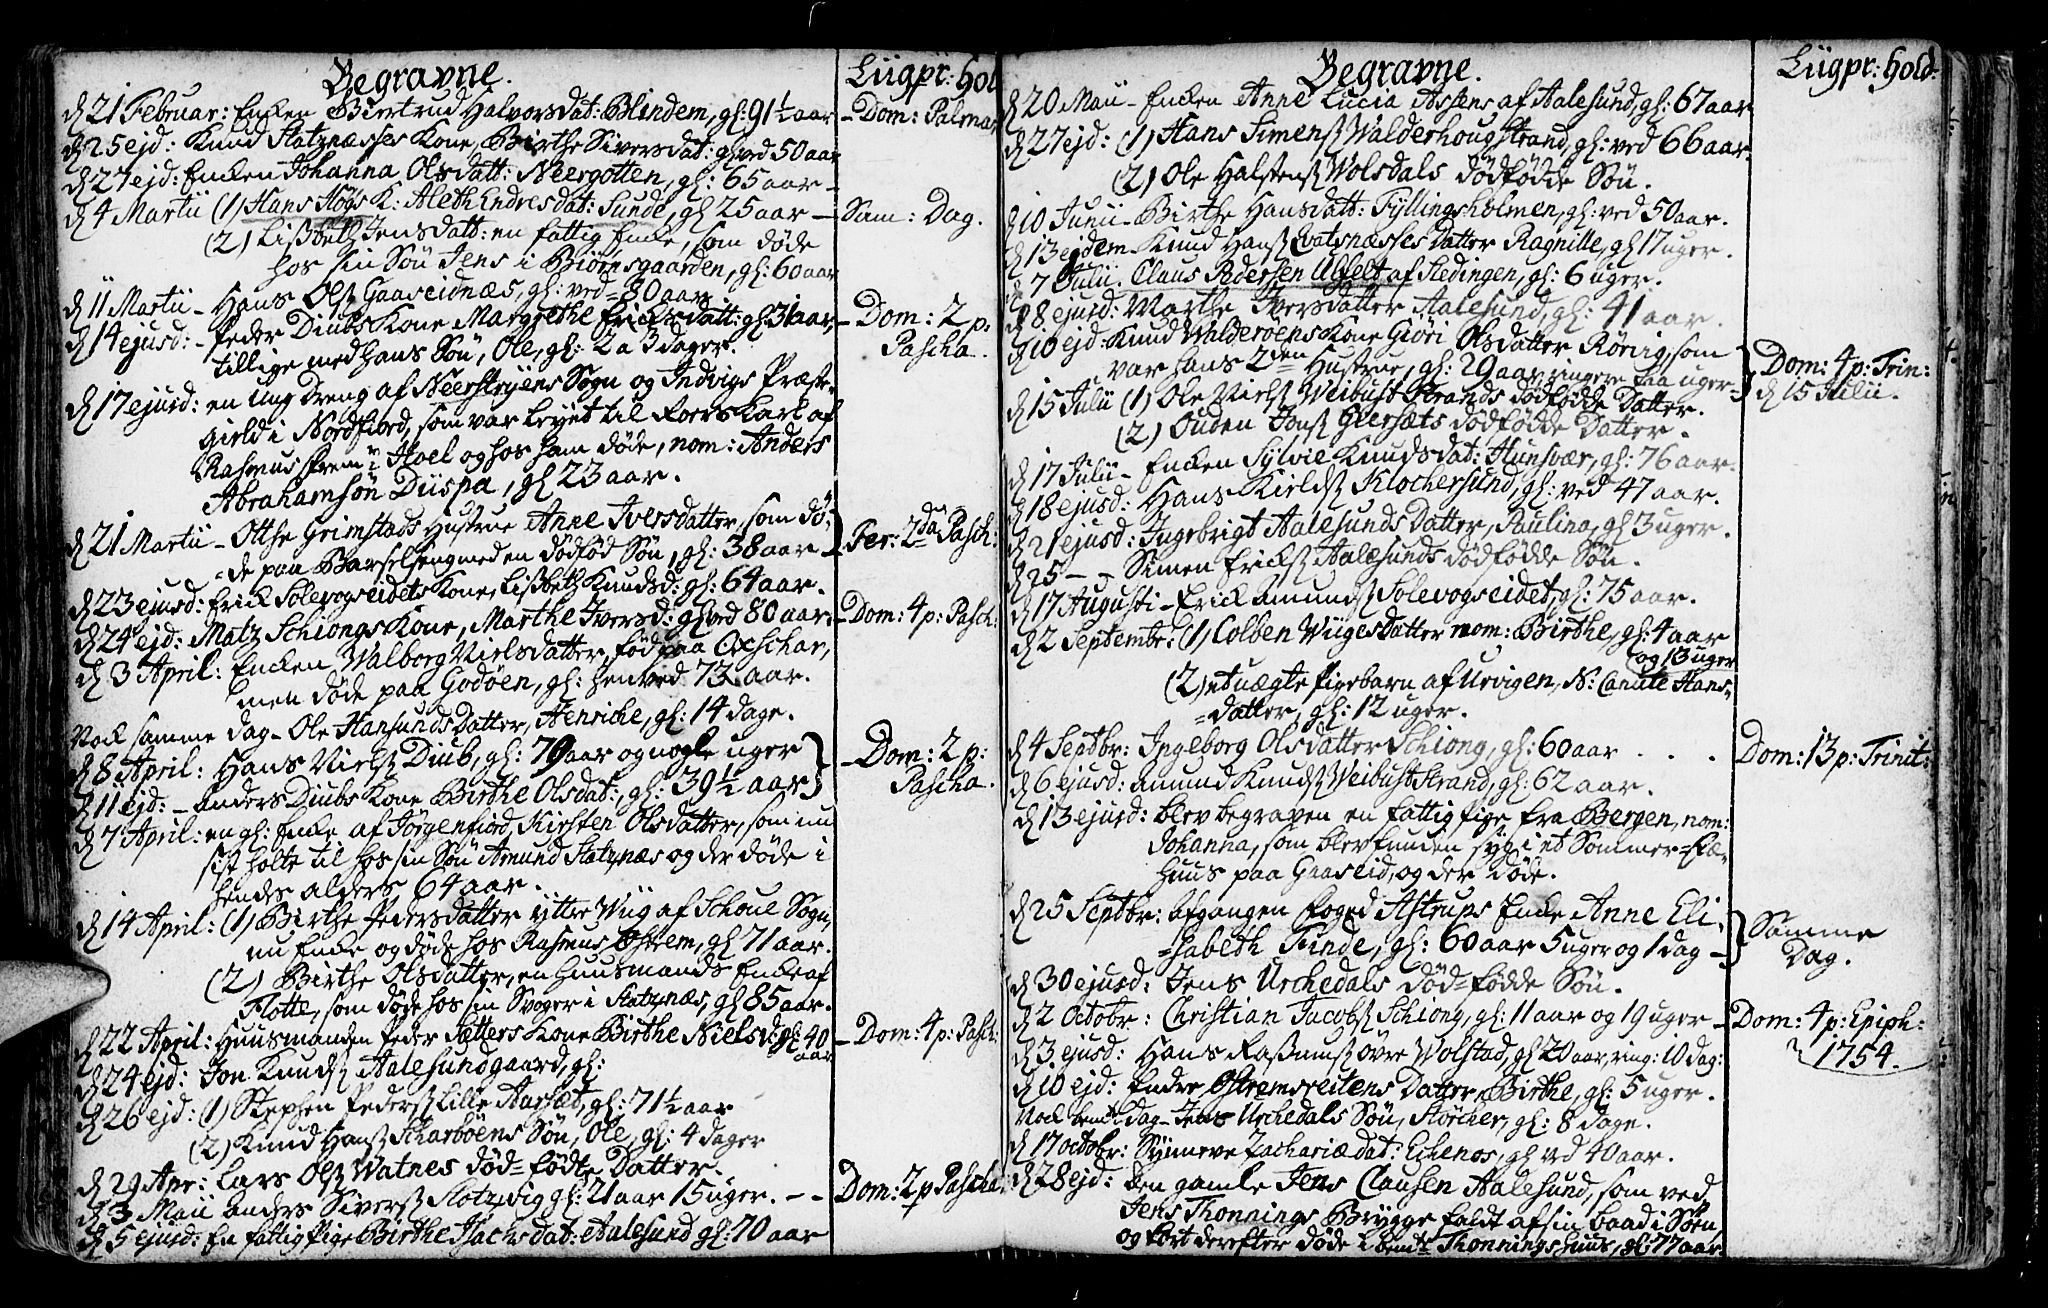 Begravne.
Liigpr: hol
d 21 Februar: Encken Giertrud Halvorsdat: Blindem, gl: 91½ aar
– Dom: Palmar
d 25 ejd: Knud Statznæsses Kone, Birthe Siversdat: gl: ved 50 aar
d 27 ejd: Encken Johanna Olsdatt: Neergotten, gl: 65 aar –
d 4 Martii (1) Hans Høgs K: Aleth Endresdat: Sunde, gl 25 aar –
Sam: Dag.
(2) Lisbeth Jensdatt: en fattig Encke, som døde
hos sin Søn Jens i Biørnsgaarden, gl: 60 aar
d 11 Martii – Hans Ols Gaaseidnæs, gl: ved 80 aar
d 14 ejusd: – Peder Diubs Kone Margrethe Ericksdatt: gl: 31 aar,
– Dom: 2 p:
Pascha.
tillige med hans Søn, Ole, gl: 2 a 3 dager.
d 17 ejusd: en ung Dreng af Neerstryens Sogn og Indvigs Præste-
gield i Nordfiord, som var leyet til Roers Karl af
Rasmus Strem i Hoel og hos ham døde, nom: Anders
Abrahamsøn Diispa, gl 23 aar.
d 21 Martii – Otthe Grimstads Hustrue Anne Iversdatter, som dø-
Fer: 2da Pasch:
=de paa Barselseng med en dødfød Søn, gl: 38 aar –
d 23 ejusd: Erick Solevogseidets Kone, Lisbeth Knudsd: gl: 64 aar.
d 24 ejd: Matz Schiongs Kone, Marthe Iversd: gl ved 80 aar –
– Dom: 4 p: Pasch:
d 3 April: Encken Walborg Nielsdatter, fød paa Oxschar,
men døde paa Godøen, gl: henved 73 aar.
Nock samme dag – Ole Hansunds Datter, Henriche, gl: 14 dage.
d 8 April: Hans Niels Diub, gl: 79 aar og nogle uger
– Dom: 2 p:
Pascha.
d 11 ejd: – Anders Diubs Kone Birthe Olsdat:, gl: 39½ aar
d 7 April: en gl: Encke af Jörgenfiord, Kirsten Olsdatter, som nu
sist holte til hos sin Søn Amund Statznæs og der døde i
hendes alders 64 aar.
d 14 April: (1) Birthe Pedersdatter yttre Wiig af Schoue Sogn,
nu Encke og døde hos Rasmus Østrem, gl 71 aar.
(2) Birthe Olsdatter, en Huusmands Encke af
Flotte, som døde hos sin Svoger i Statznæs, gl 85 aar.
d 22 April: Huusmanden Peder Sætters Kone Birthe Nielsd: gl: 40
aar
– Dom: 4 p: Pasch:
d 24 ejd: Jon Knuds Aalesundgaard, gl:
d 26 ejd: (1) Stephen Peders Lille Aarsæt, gl: 71½ aar
(2) Knud Hans Scharbøens Søn, Ole, gl: 4 dager
d 29 Apr: Lars Ols Watnes død=fødte Datter.
d 3 Maii Anders Sivers Slotzvig gl: 21 aar 15 uger. – –
Dom: 2 p Pascha.
d 5 ejusd: En fattig Pige Birthe Isachsdat: Aalesund gl: 70 aar
Begravne.
Liigpr: hold:
d 20 Maii – Encken Anne Lucia Assens af Aalesund, gl: 67 aar
d 27 ejd: (1) Hans Simens Walderhougstrand, gl: ved 66 aar.
(2) Ole Halstens Wolsdals dødfødde Søn.
d 10 Junii – Birthe Hansdatt: Fyllingsholmen, gl: ved 50 aar.
d 13 ejdem – Knud Hans Qvatsnæsses Datter Ragnille, gl 17 uger.
d 7 Julii. Claus Pedersen Ulfelt af Stedingen, gl: 6 uger.
d 8 ejusd: Marthe Iversdatter Aalesund, gl: 41 aar.
d 10 ejd: Knud Walderøens Kone Giøri Olsdatter Rørvig, som
var hans 2den Hustrue, gl: 29 aar ringere faa uger –
Dom: 4 p: Trin:
d 15 Julii.
d 15 Julii (1) Ole Niels Weibust Strands dødfødde Datter.
(2) Ouden Jons Geersæts dødfødde Datter.
d 17 Julii – Encken Sylvie Knudsdat: Hunsvær, gl: 76 aar.
d 18 ejusd: Hans Kields Klochersund, gl: ved 47 aar.
d 21 ejusd: Ingebrigt Aalesunds Datter, Paulina, gl 3 uger.
d 25 – – Simen Ericks Aalesunds dødfødde Søn.
d 17 Augusti – Erick Amunds Solevogseidet, gl: 75 aar.
d 2 Septembr: (1) Colben Wiiges Datter nom: Birthe, gl: 4 aar
og 13 uger
(2) et uægte Pigebarn af Urvigen, N: Canute Hans-
=datter, gl: 12 uger.
d 4 Septbr: Ingeborg Olsdatter Schiong, gl: 60 aar . . .
Dom: 13 p: Trinit:
d 6 ejusd: Amund Knuds Weibust Strand, gl: 62 aar.
d 13 ejusd: blev begraven en fattig Pige fra Bergen, nom:
Johanna, som blev funden syg i et Sommer=Fæ-
huus paa Gaaseid, og der døde.
d 25 Septbr: Afgangen Foged Astrups Encke Anne Eli-
=sabeth Finde, gl: 60 aar 5 uger og 1 dag –
Samme
Dag.
d 30 ejusd: Jens Urchedals død=fødde Søn.
d 2 Octobr: Christian Jacobs Schiong, gl: 11 aar og 19 uger –
Dom: 4 p: Epiph:
1754.
d 3 ejusd: Hans Rasmus øvre Wolstad, gl 20 aar, ring: 10 dag:
d 10 ejd: Endre Østremseitens Datter, Birthe, gl: 5 uger.
Nock bemt dag – Jens Urchedals Søn, Storcher, gl: 8 dage.
d 17 octobr: Synneve Zachariædat: Echenos, gl ved 40 aar.
d 28 ejd: den gamle Jens Clausen Aalesund, som ved
Jens Thonnings Brygge faldt af sin baad i Søen
og kort derefter døde i bemte Thonnings huus, gl: 77 aar.